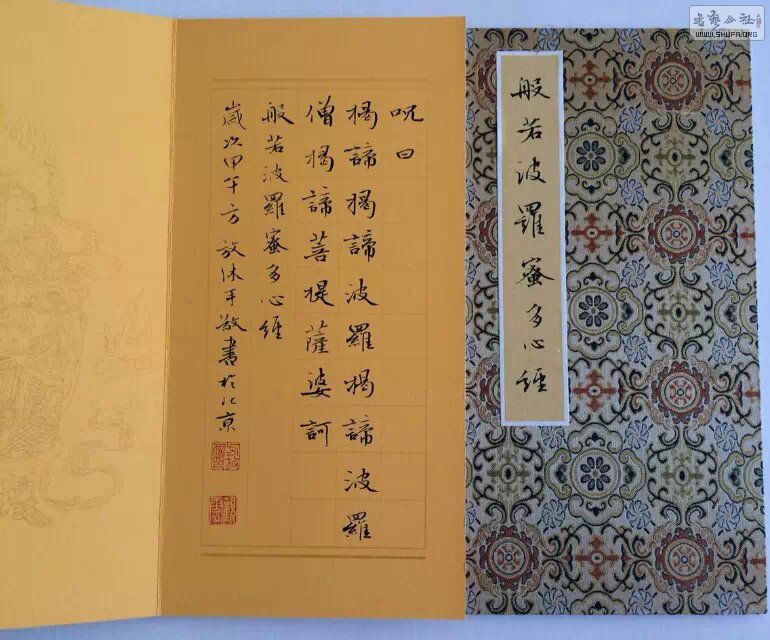 書藝公社
WWW.SHUFA.ORG
般若波羅蜜多心經
呪曰
揭諦揭諦波羅揭諦波羅
僧揭諦菩提薩婆訶
般若波羅蜜多心經
歲次甲午方放沐手敬書於北京